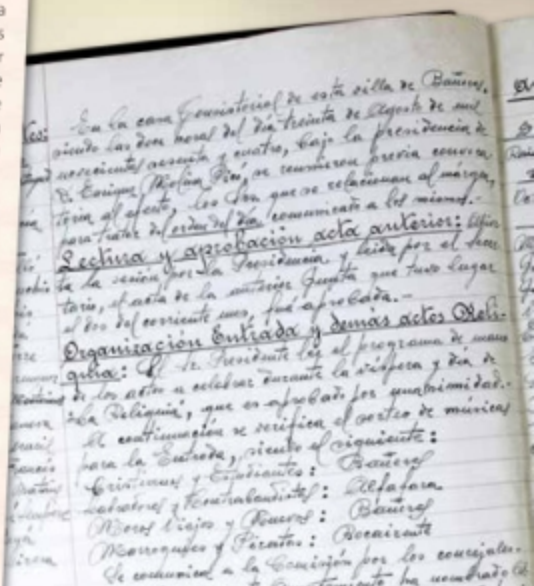 En la casa Consistorial de esta villa de Bañeres,
siendo las doce horas del día treinta de Agosto de mil
novecientos sesenta y cuatro, bajo la presidencia de
D. Enrique Molina Picó, se reunieron previa convoca
toria al efecto, los Sres que se relacionan al márgen,
para tratar del orden del día comunicado a los mismos.-
Lectura y aprobación acta anterior: Abier
ta la sesión por la Presidencia y leída por el Secre
tario, el acta de la anterior Junta que tuvo lugar
el dos del corriente mes, fué aprobada.-
Organización Entrada y demás actos Reli-
quia: El Sr. Presidente lee el programa de mano
de los actos a celebrar durante la víspera y día de
"La Reliquia", que es aprobado por unanimidad.-
A continuación se verifica el sorteo de músicas
para la Entrada, siendo el siguiente:
Cristianos y Estudiantes: Bañeres
Labradores y Contrabandistas: Alfafara
Moros Viejos y Nuevos: Bañeres
Marroquíes y Piratas: Bocairente
Se comunica a la Comisión por los concejales
ha nombrado